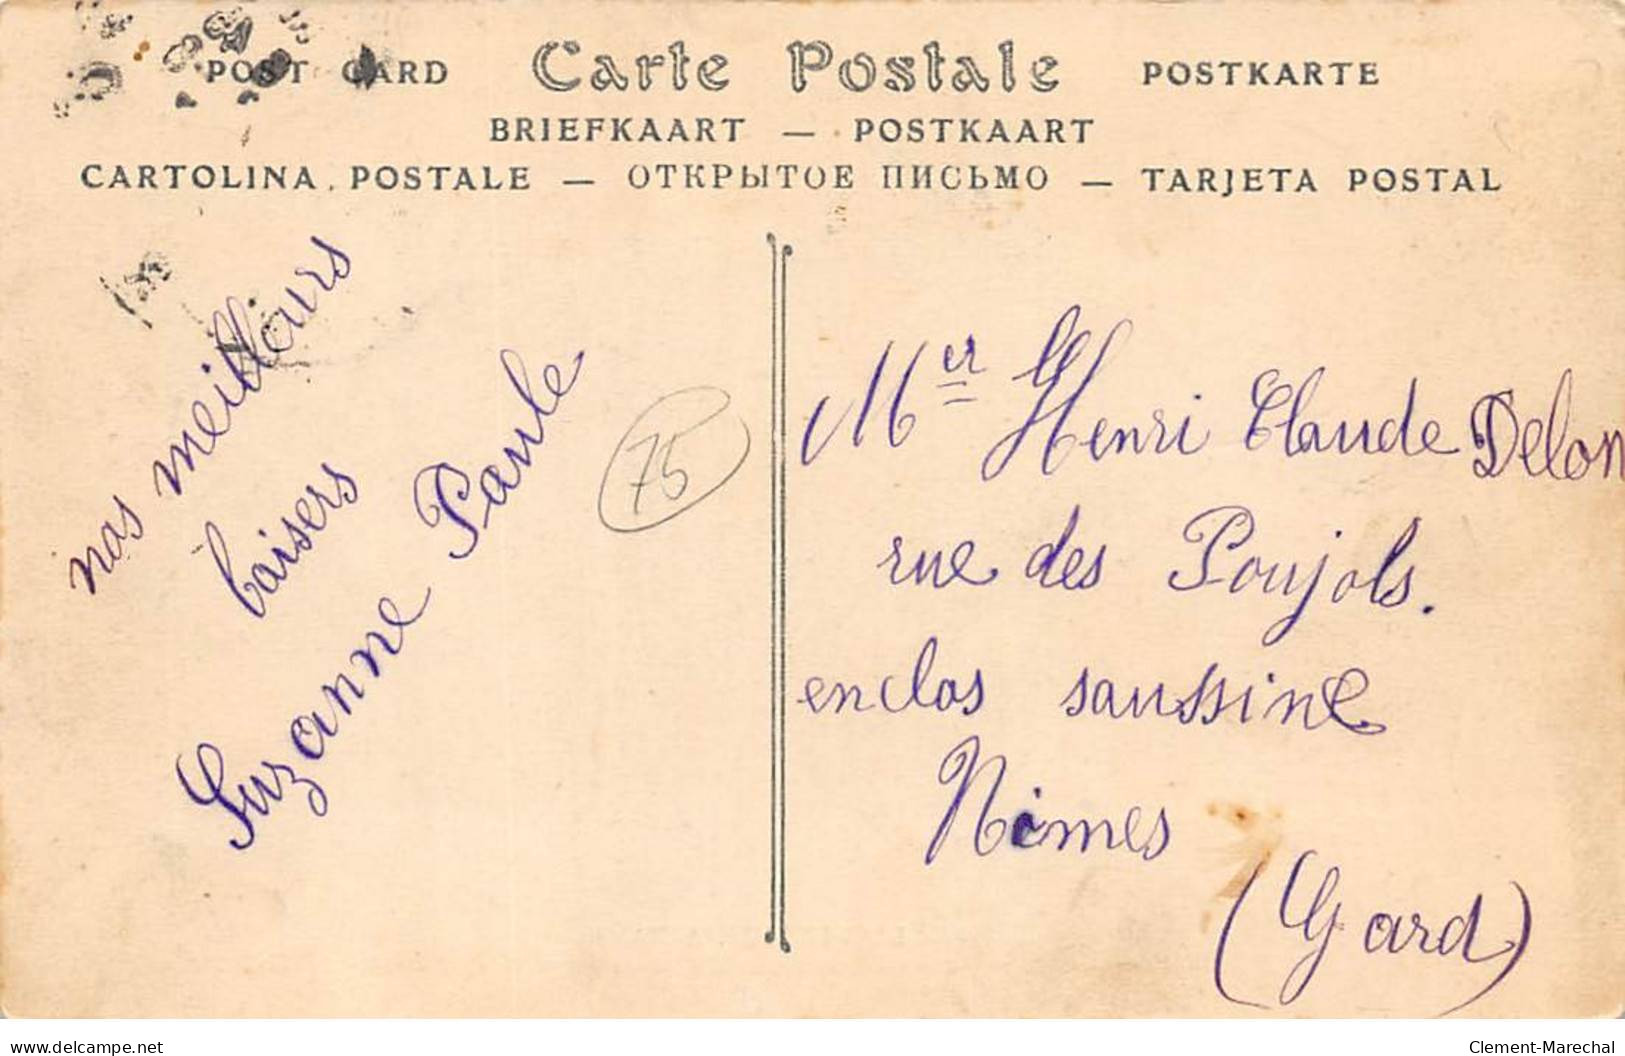 POST CARD Carte Postale POSTKARTE
BRIEFKAART — POSTKAART
CARTOLINA POSTALE — ОТКРЫТОЕ ПИСЬМО — TARJETA POSTAL
nos meilleurs
baisers
Suzanne Paule
75
Mer Henri Claude Delon
rue des Poujols.
enclos saussine
Nimes
(Gard)
www.delcampe.net
Clement-Marechal